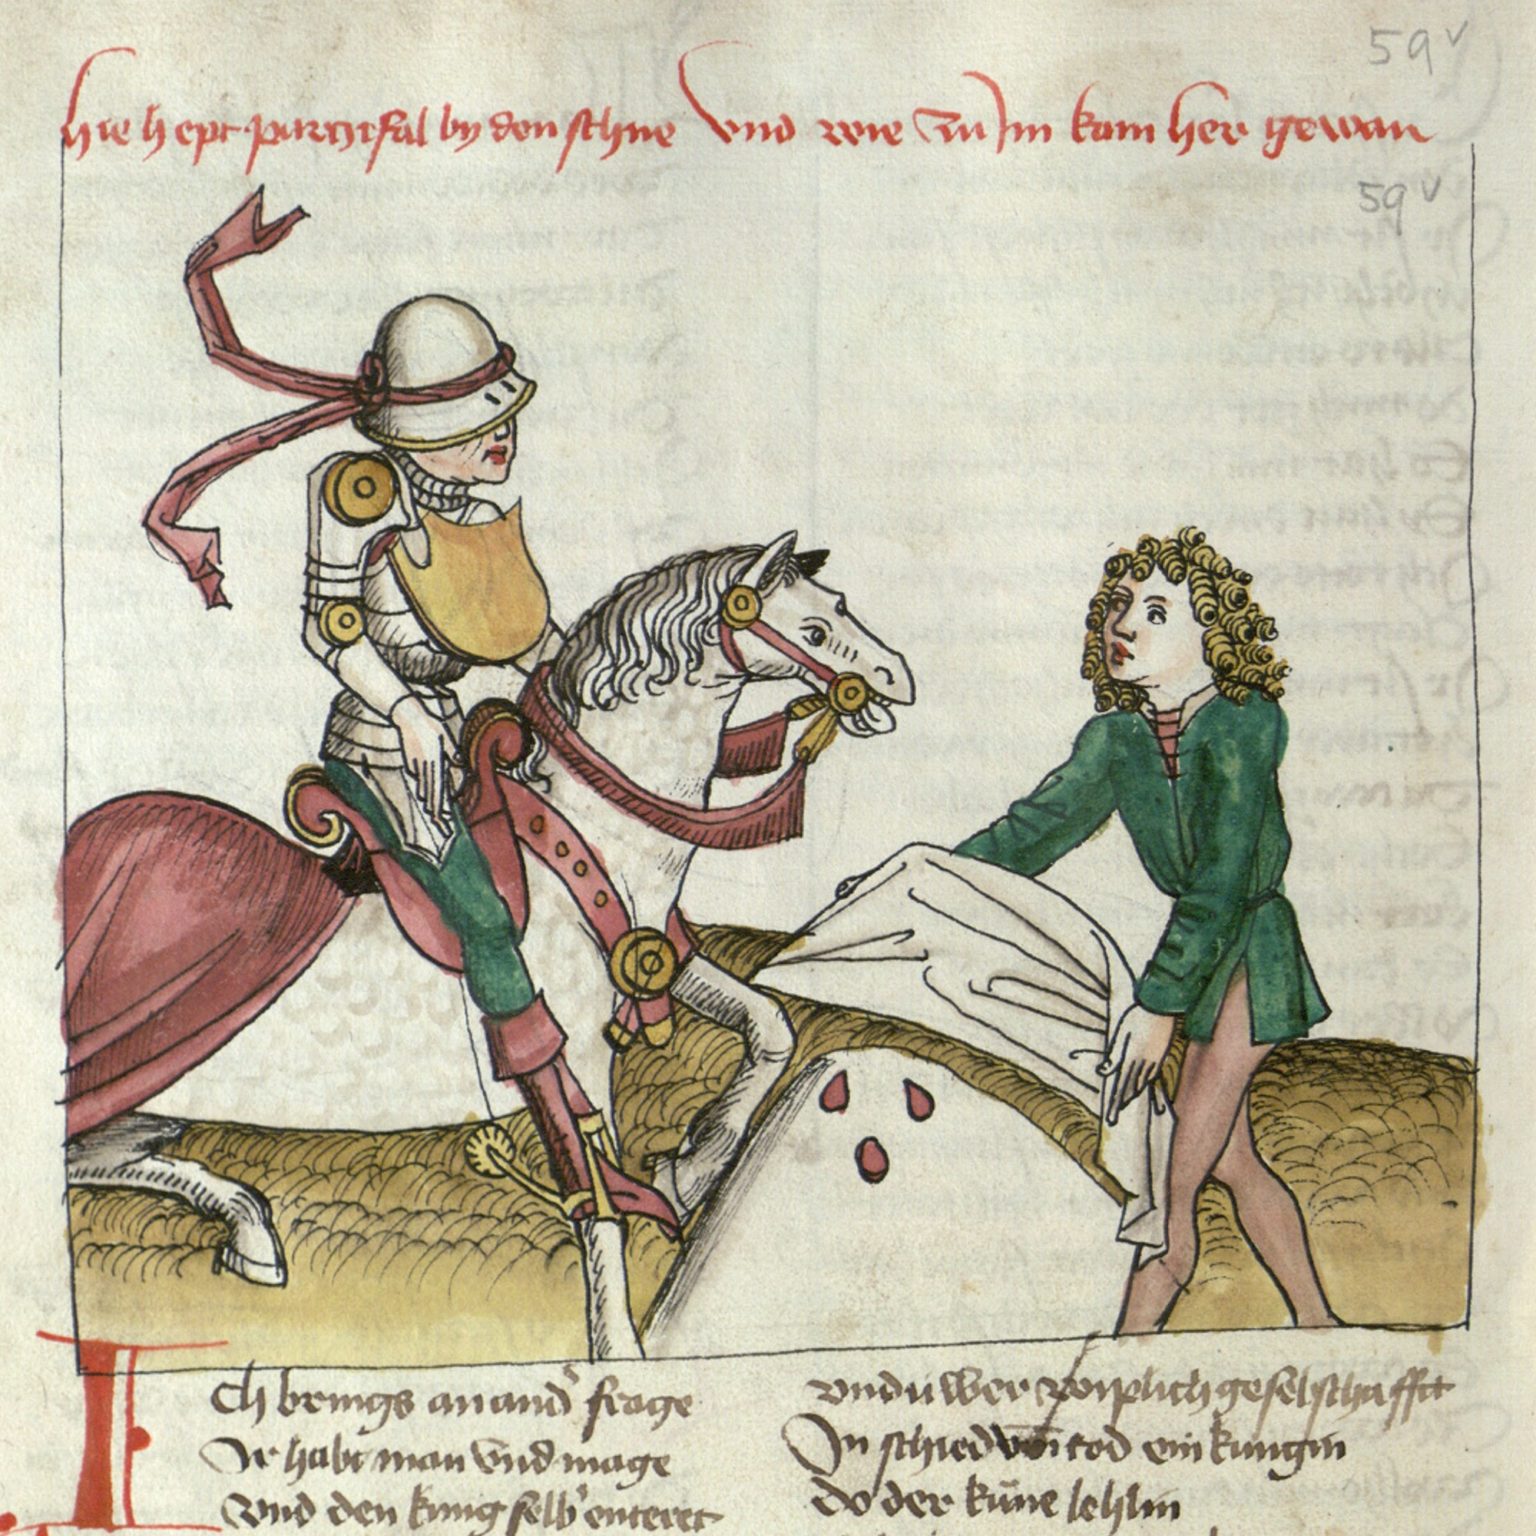 59v
hie hept parczifal by den schne vnd wie zu im kam her gawan
59v
Ich brings an and' frage
Ir habt man vnd mage
vnd den kung selb' enteret
vnd uwer wiplich geselschafft
In schied von tod ein kungin
do der kune lehlin